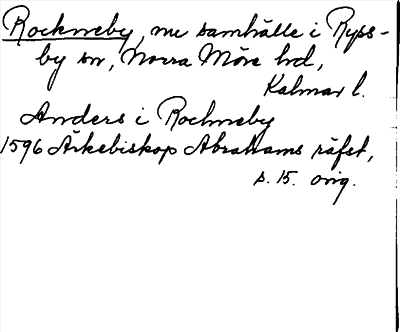 Rockneby, nu samhälle i Ryss-
by sn, Norra Möre hd,
Kalmar l.
Anders i Rockneby
1596 Ärkebiskop Abrahams räfst,
s. 15. orig.